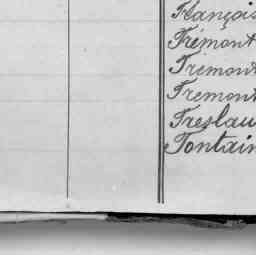 François
Frémont
Frémont
Fremont
Freslau
Fontain